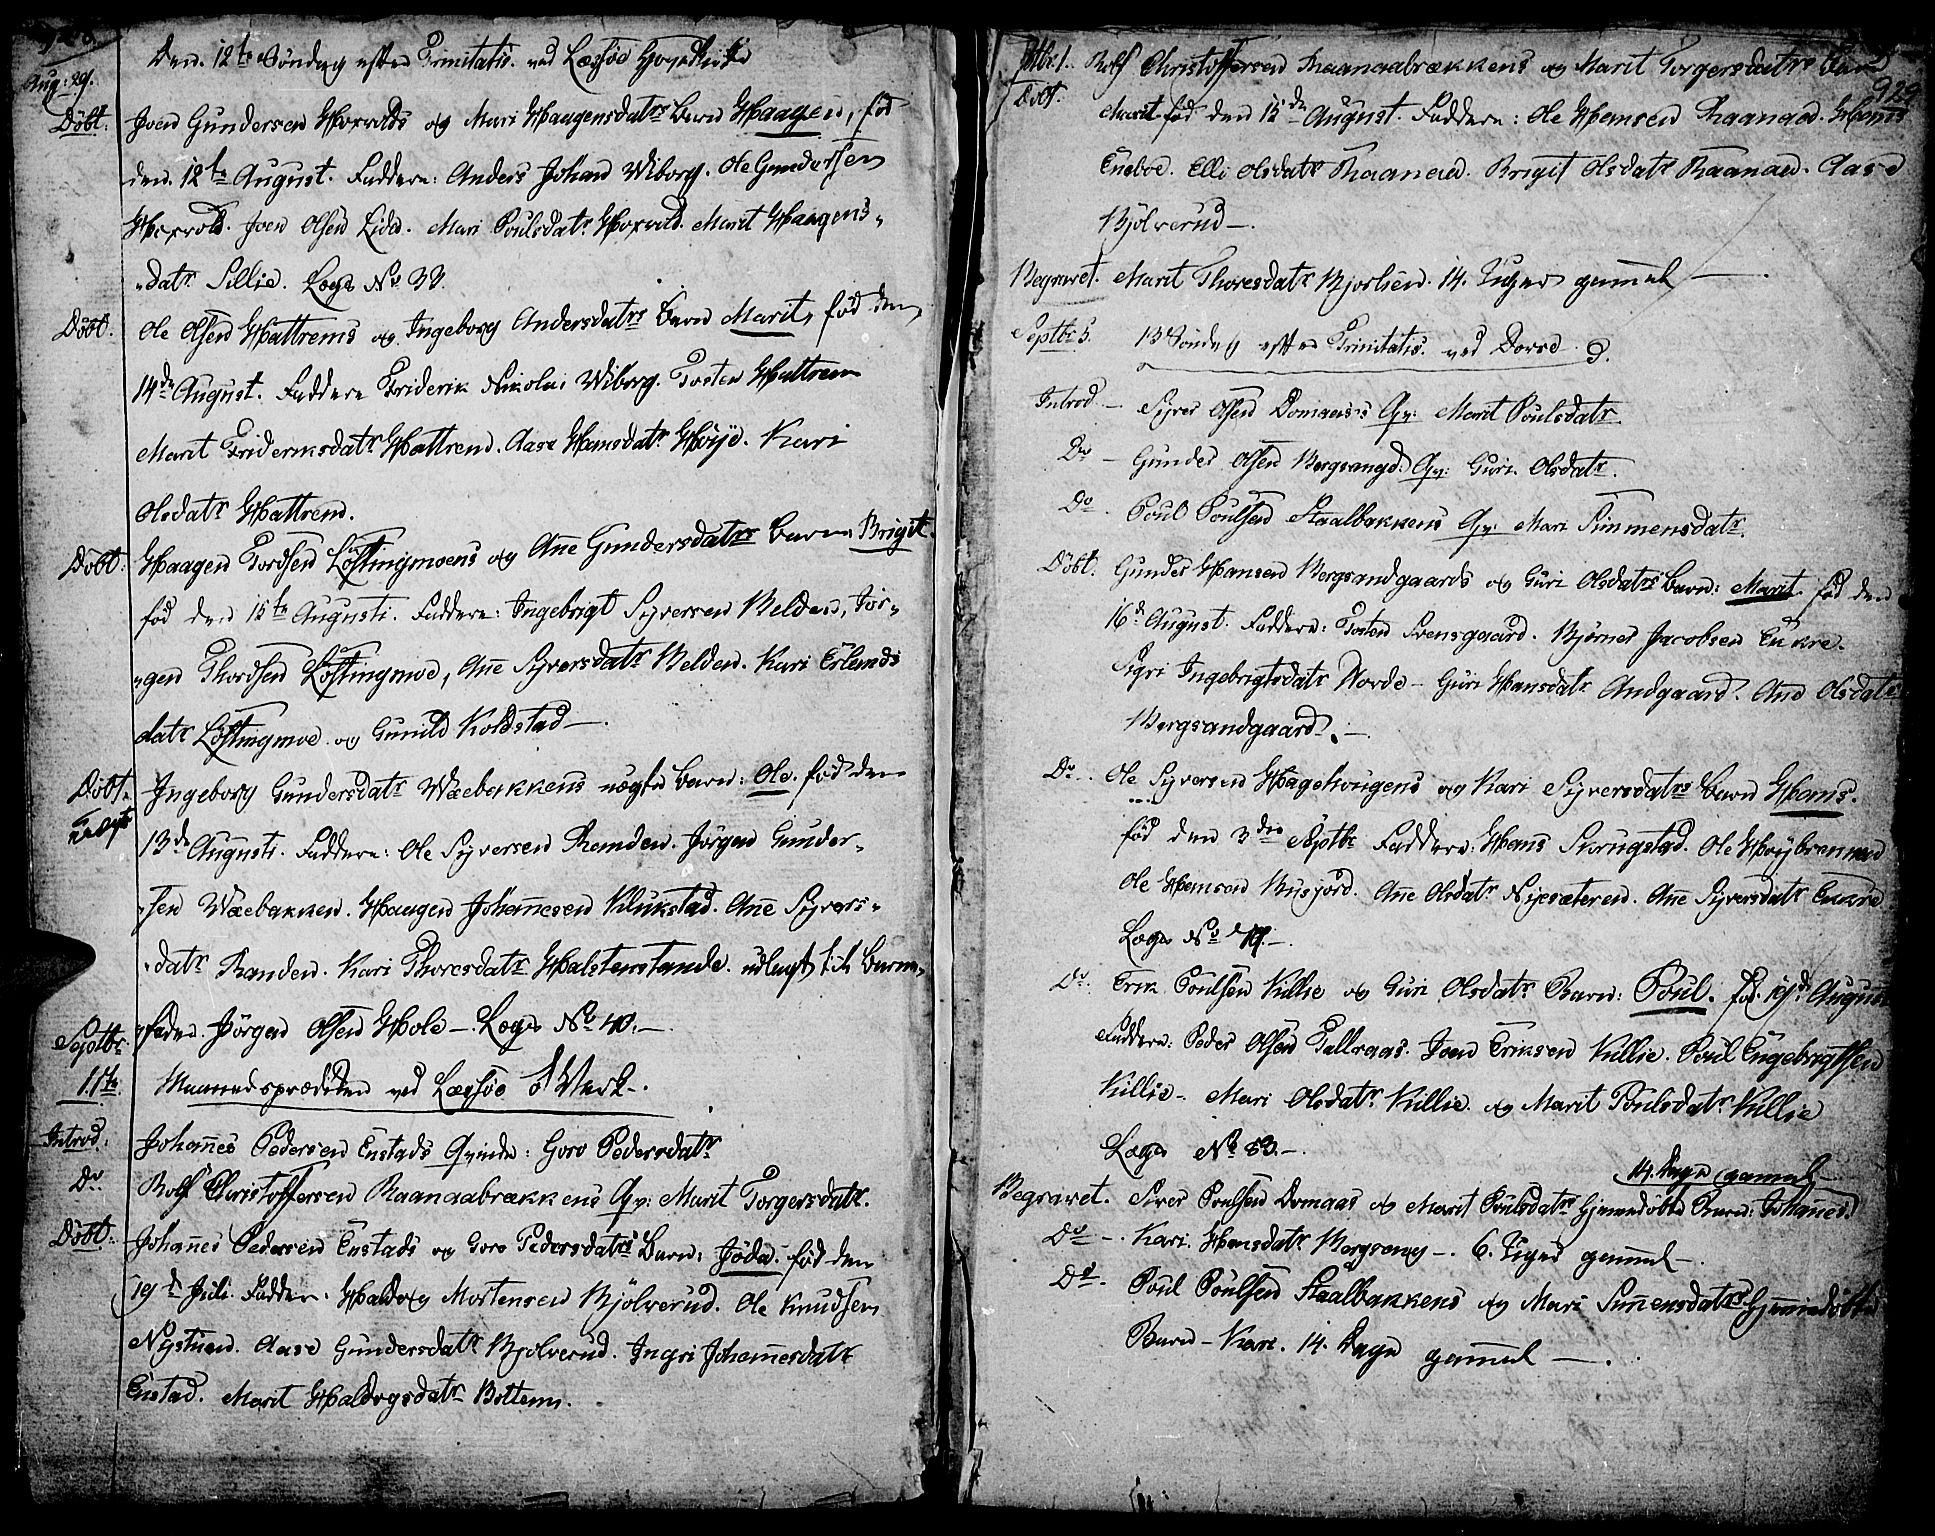 Aug: 29. Den 12te Søndag efter Trinitatis. ved Læssøe
Døbt. Joen Gundersen Horvolds og Mari Haagensdatrs Barn Haagen, fød
den 12te August. Faddere: Anders Johan Wiborg. Ole Gundersen
Horvold. Joen Olsen Lide. Mari Poulsdatr Horvold. Marit Haagens-
datr Lillie. Lægs No 33.
Døbt. Ole Olsen Hattrems og Ingeborg Andersdatrs Barn Marit, fød den
14de August. Faddere Friderik Nikolai Wiborg. Tosten Hattrem
Marit Frideriksdatr Hattrem. Aase Hansdatr Høije. Kari
Olsdatr Hattrem.
Døbt: Haagen Tordsen Løftingmoens og Añe Gundersdatrs Barn Brigit.
fød den 15te Augusti. Faddere: Ingebrigt Syversen Belden, Jør-
gen Thordsen Løftingmoe, Añe Syversdatr Belden. Kari Erlends
datr Løftingmoe og Gunild Kolstad —.
Døbt. uægte Ingeborg Gundersdatr Wæbakkens uægte Barn: Ole. fød den
13de Augusti. Faddere: Ole Syversen Randen. Jørgen Gunder-
sen Wæebakken. Haagen Johañesen Klukstad. Añe Syvers-
datr Randen. Kari Thoresdatr Halstenstande. udlagt til Barne-
fader Jørgen Olsen Hole —. Lægs No 40. —.
Septbr 1ste Maanedsprædiken ved Læssøe Werk —.
Introd: Johañes Pedersen Enstads Qvinde: Goro Pedersdatr
Do Rolf Christoffersen Raanaabrækkens Qv: Marit Torgersdatr.
Døbt: Johañes Pedersen Enstads og Goro Pedersdatrs Barn: Jøda. fød den
19de Juli. Faddere: Haldog Mortensen Bjølverud. Ole Knudsen
Nystuen. Aase Gundersdatr Bjølverud. Ingri Johañesdatr
Enstad. Marit Haldogsdatr Bottem.
929
Stbr 1. Rolf Christoffersen Raanaabrækkens og Marit Torgersdatrs Barn
Døbt. Marit fød den 15de August. Faddere: Ole Hansen Raanaae. Hans
Eneboe. Elli Olsdatr Raanaae. Brigit Olsdatr Raanaae. Aase
Bjølverud —.
Begravet. Marit Thoresdatr Bjorlien. 14. Uger gammel —.
Septbr 5. 13 Søndag efter Trinitatis. ved Dovre
Introd — Syver Olsen Domaas's Qv: Marit Poulsdatr.
Do — Gunder Olsen Bergsangd: Qv: Guri Olsdatr.
Do. Poul Poulsen Staalbakkens Qv: Mari Simmensdatr.
Døbt. Gunder Hansen Bergsandgaards og Guri Olsdatrs Barn: Marit. fød den
16de August. Faddere: Tosten Svensgaard. Bjørner Jacobsen Enkre.
Sigri Ingebrigtsdatr Norde — Guri Hansdatr Andgaard. Ane Olsdatr
Bergsandgaard. —.
Do. Ole Syversen Hagehougens og Kari Syversdatrs Barn Hans.
fød den 3die Septbr Faddere: Hans Skrugstad. Ole Høybrennen
Ole Hansen Busjord. Añe Olsdatr Nysæteren. Añe Syversdatr Enkre
Lægs No 19. —.
Do. Erik Poulsen Killie og Guri Olsdatr Barn: Poul. fød. 19de August
Faddere: Peder Olsen Tallraas. Joen Eriksen Killie. Poul Engebrigtsen
Killie — Mari Olsdatr Killie. og Marit Poulsdatr Killie
Lægs No 53. —.
14. Dage gammel —
Begravet. Siver Poulsen Domaas og Marit Poulsdatrs hjemmedøbte Barn: Johañes.
Do —. Kari Hansdatr Borgseng —. 6. Uger gammel —.
Do. Poul Poulsen Staalbakkens og Mari Simensdatrs Hjemmedøbte
Barn — Kari. 14. Dage gammel —.